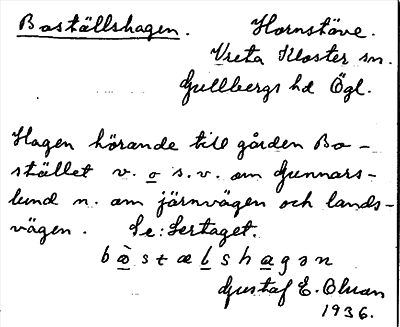 Boställshagen. Hornstöve.
Vreta Kloster sn.
Gullbergs hd Ögl.
Hagen hörande till gården Bo-
stället v. o s.v. om Gunnars-
lund n. om järnvägen och lands-
vägen. Se: Sertaget.
bo̱̊stælshagən
Gustaf E. Olsson
1936.